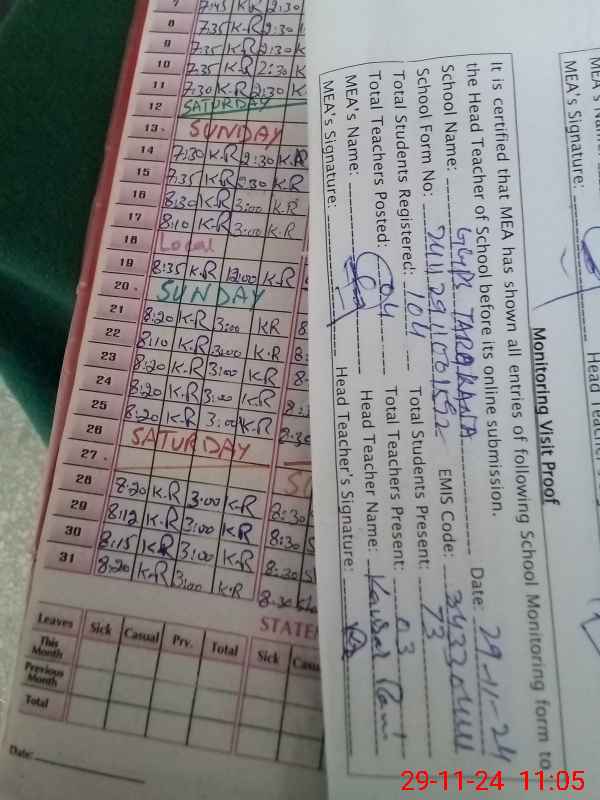 7 7:45 K.R 2:30
8 7:35 K-R 2:30
9 7:35 K-R 2:30 K
10 7:35 K-R 2:30 K
11 7:30 K-R 2:30 K.
12 SATURDAY
13. SUNDAY
14 7:30 K-R 2:30 K.R
15 7:35 K-R 2:30 K-R
16 8:30 K-R 3:00 K.R
17 8:10 K-R 3:00 K.R
18 Local
19 8:35 K-R 12:00 K-R
20. SUNDAY
21 8:20 K-R 3:00 KR
22 8:10 K-R 3:00 K.R
23 8:20 K-R 3:00 K-R
24 8:20 K-R 3:00 K.R
25 8:20 K-R 3:00 K.R
26 SATURDAY
27.
28 7:20 K-R 3:00 K-R
29 8:12 K-R 3:00 K-R
30 8:15 K-R 3:00 K-R
31 8:20 K-R 3:00 K.R
STATE
Leaves Sick Casual Prv. Total Sick
This Month
Previous Month
Total
Date:
Monitoring Visit Proof
It is certified that MEA has shown all entries of following School Monitoring form to
the Head Teacher of School before its online submission. Date: 29-11-24
School Name: TARAKANA EMIS Code:
School Form No: Total Students Present: 73
Total Students Registered: 104 Total Teachers Present: 03
Total Teachers Posted: 04 Head Teacher Name: Kausar
MEA's Name: Head Teacher's Signature:
MEA's Signature:
MEA's Signature:
29-11-24 11:05